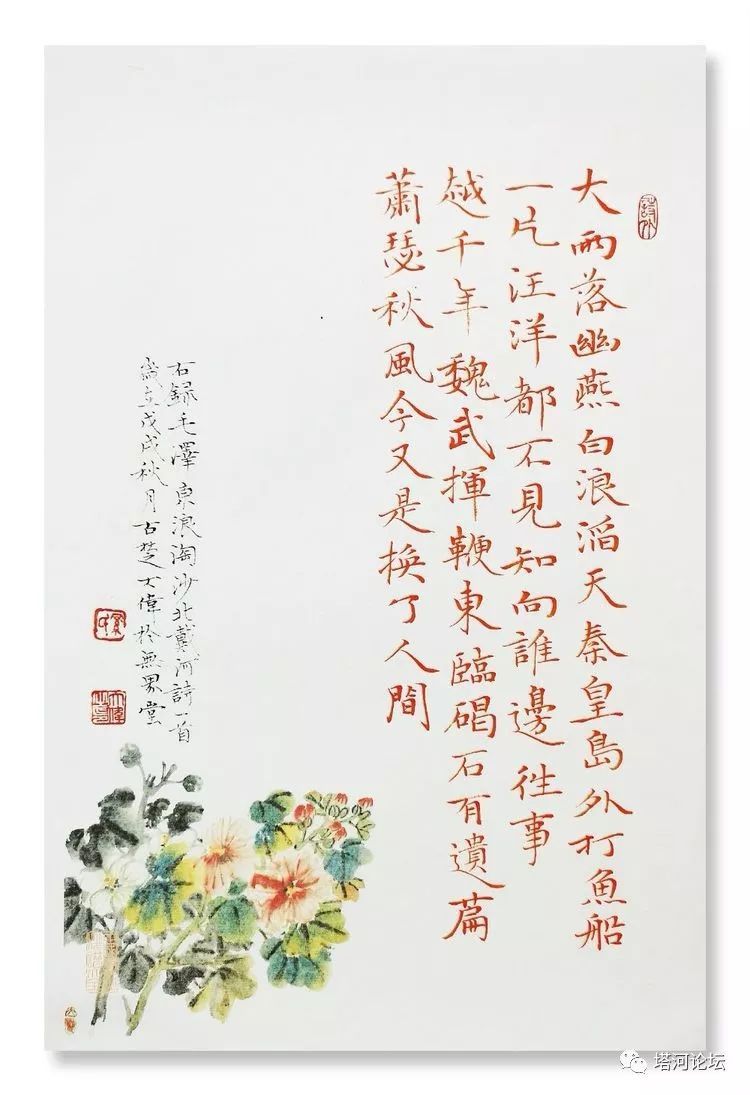 大雨落幽燕白浪滔天秦皇島外打魚船
一片汪洋都不見知向誰邊往事
越千年魏武揮鞭東臨碣石有遺篇
蕭瑟秋風今又是換了人間
右録毛澤東浪淘沙北戴河詩一首
歲在戊戌秋月古楚大偉於無界堂
塔河论坛